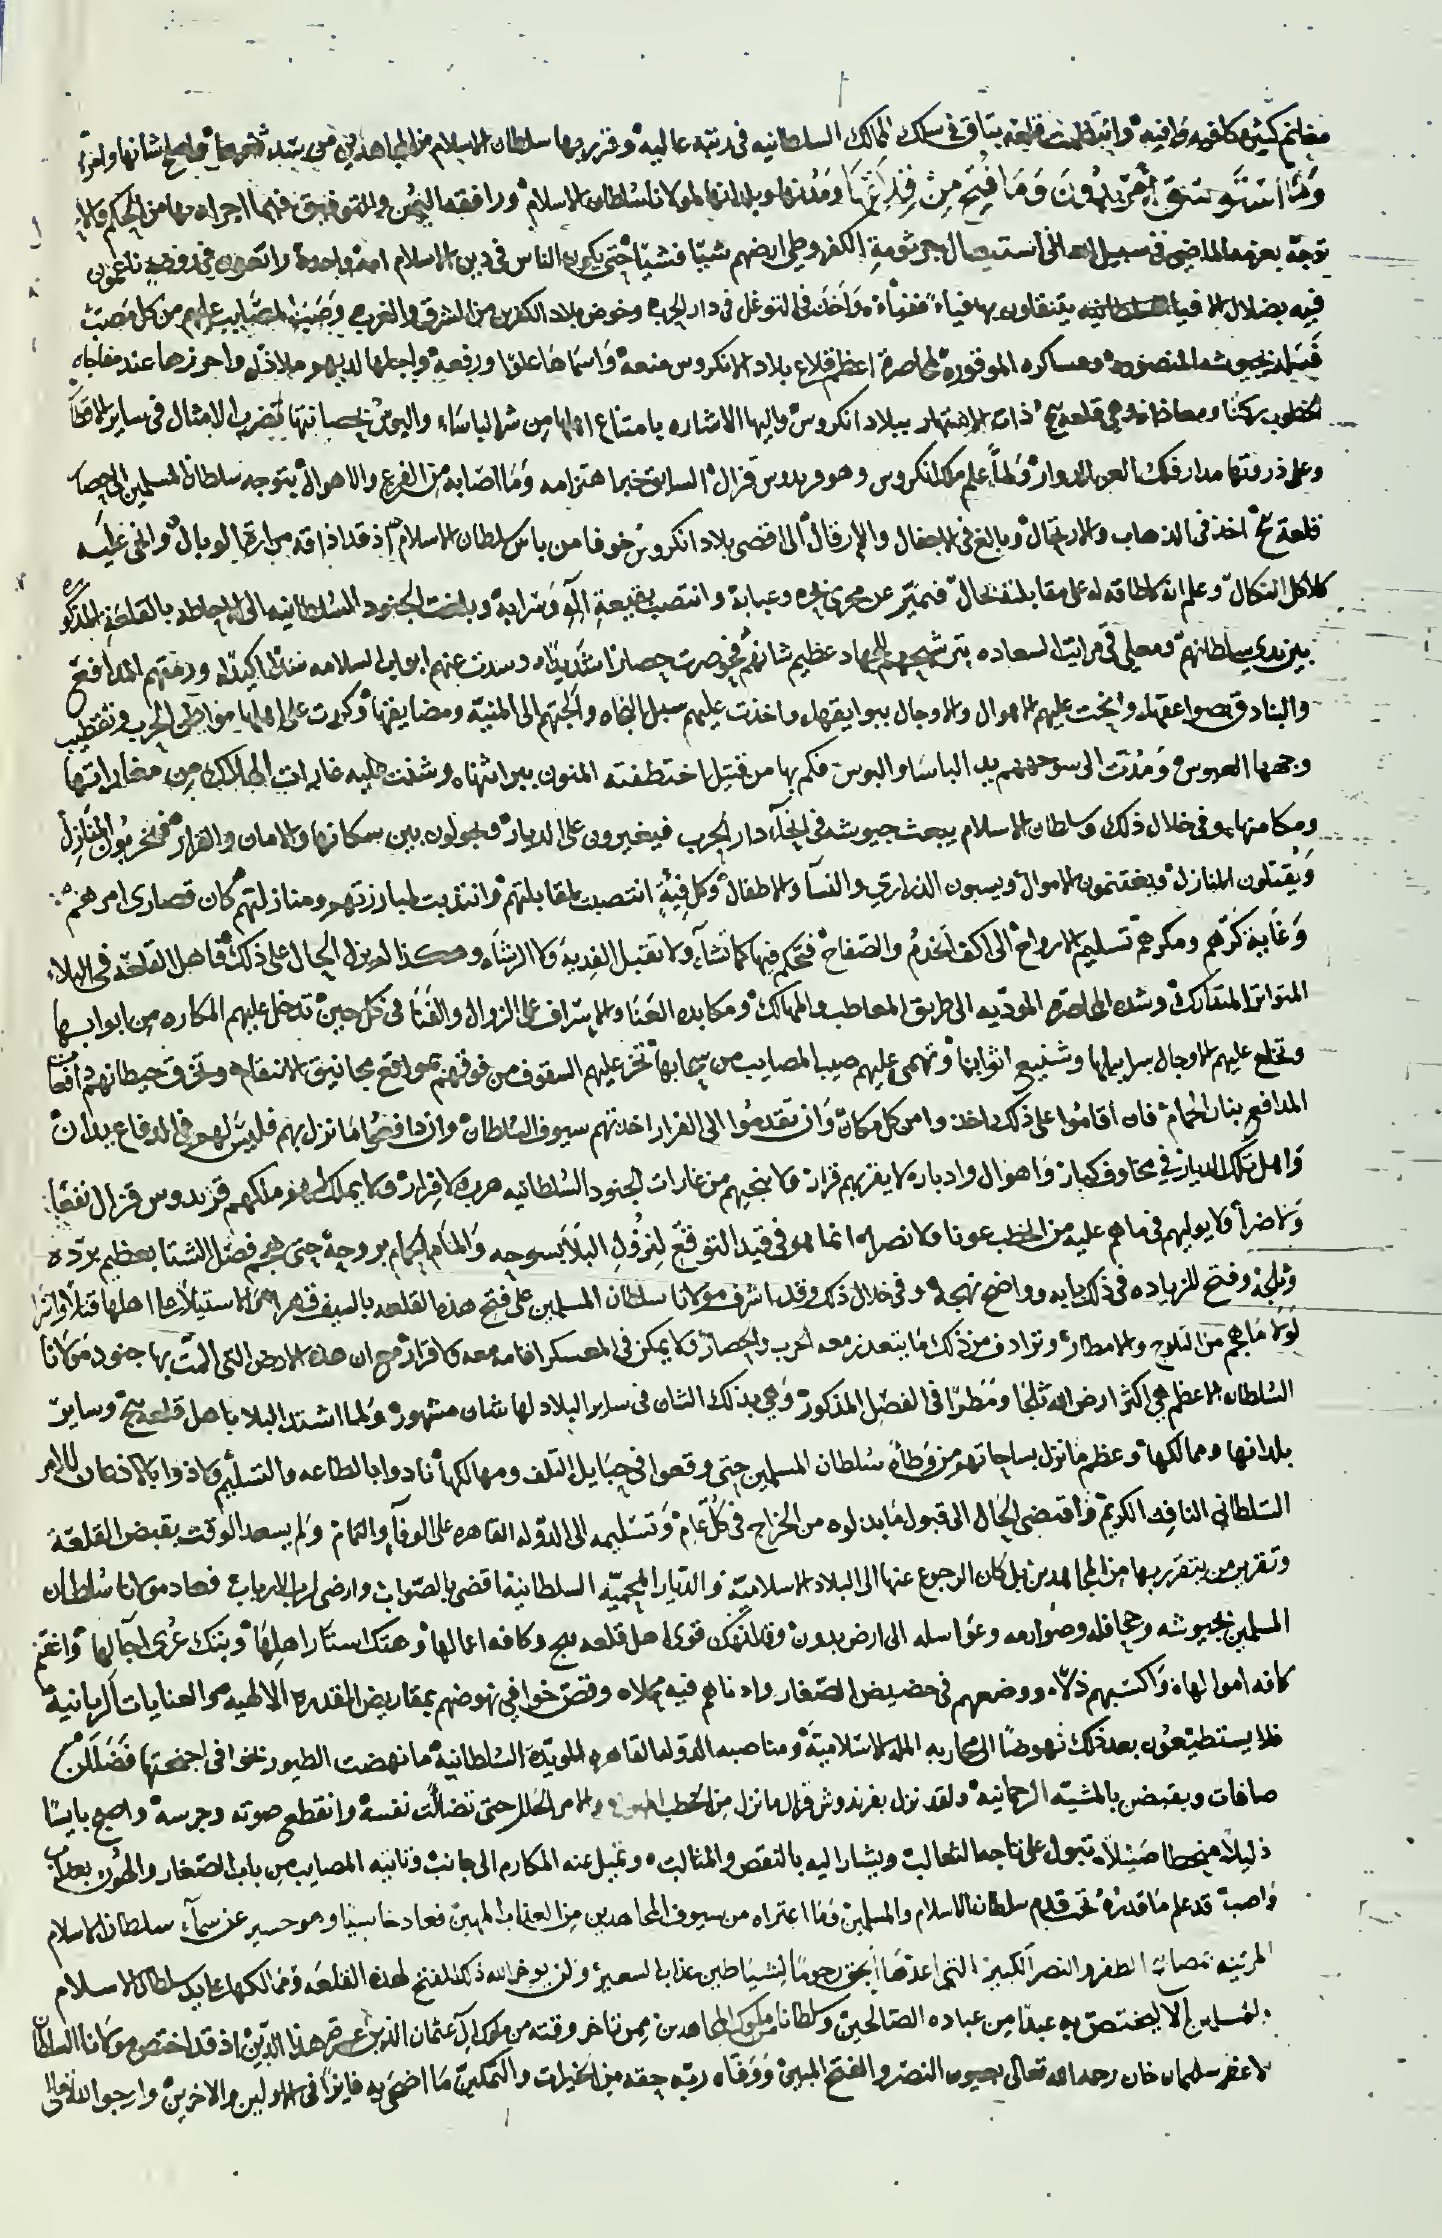 مغانم كثيره كافيه وافيه وانتظمت قلعة بتاق في سلك الممالك السلطانيه في رتبة عاليه وقرر بها سلطان الاسلام من المجاهدين من يسد ثغرها
ولما استوسق امر بدون وما فتح من وَمُدنها وبلدانها لمولانا سُلطان الاسلام ورافقه اليُمن والتوفيق فيما اجراه بها من الحكم
توجّه بعزمه الماضي في سبيل الله الى استيصال جرثومة الكفر وطي ارضهم شيئا فشيئا حتى يكون الناس في دين الاسلام امة واحدة
فيه بضلال السلطانيه يتنقلون بها فياء ففياء وَاخذ في التوغل في دار الحرب وخوض بلاد الكفر من الشرق والغرب وصَبّ المصايب عليهم من كل مَصَبّ
بجيوشه المنصوره وعساكره الموفوره لمحاصرة اعظم قلاع بلاد الانكروس منعة وَاسماها علوا ورفعة واجلها لديهم ملاذا واحرزها عند مفاجاه
الخطوب ركنا ومعاذا وهي قلعة بج ذات الاشتهار ببلاد انكروس واليها الاشاره بامتناع اهلها من شر الباساء والبوس بحصانتها تضرب الامثال في ساير الاقطار
وعلى ذروتها مدار فلك الدوار ولما علم ملك انكروس وهو فريدوس قرال السابق خبر انهزامه وَمَا اصابه من الفزع والاهوال بتوجه سلطان المسلمين الى حصار
قلعة بج اخذ في الذهاب والارتحال وبالغ في الاجفال والارقال الى اقصى بلاد انكروس خوفا من باس سلطان الاسلام اذ قد اذاقه مرارة الوبال وانحى عليه
كلاكل النكال وعلم انه لا طاقه له على مقابلته بحال وبلغت الجنود السُلطانيه الى الاحاطه بالقلعة المذكوره
بين يدي سلطانهم ومعلي في مراتب السعاده بترشيحهم للجهاد عظيم شانهم فحوصرت حصارا شديدا وسدت عنهم ابواب السلامه سدا اكيدا ورمتهم المدافع
والبنادق بصواعقها وانحت عليهم الاهوال والاوجال ببوايقها واخذت عليهم سبل النجاه وَالجتهم الى المنيّة ومضايقها وكررت على اهلها مواطن الحرب وتقطيب
وجهها العبوس وَمُدّت الى سوحهم يد الباسا والبوس فكم بها من قتيل اختطفته المنون ببراثنها وشنت عليه غارات الهلاك من مغاراتها
ومكامنها وفي خلال ذلك وسلطان الاسلام يبعث جيوشه في انحآء دار الحرب فيغيرون على الديار ويحولون بين سكانها والامان والقرار فيخربون المنازل
وَيُقتلون المنازل ويغتنمون الاموال ويسبون الذراري والنسآ والاطفال وكل فيئةٍ انتصبت لمقابلتهم وانتدبت لمبارزتهم ومنازلتهم كان قصارى امرهم
وَغاية كرّهم ومكرهم تسليم الارواح الى اكف الخدم والصّفاح فتحكم فيها كما تشآء ولا تقبل الفدية ولا الرشآء وهكذا لم يزل الحال على ذلك واهل القلعة في البلاء
المتواتر المتدارك وشده المحاصرة الموديه الى طريق المعاطب والمهالك ومكابده العَنا والاشراف على الزوال والفَنآ في كل حين تدخل عليهم المكاره من ابوابها
وتخلع عليهم الاوجال سرابيلها وشنيع اثوابها وتهمي عليهم صيب المصايب من سحابها تخر عليهم السقوف من فوقهم بمواقع مجانيق الانتقام وتخرق حيطانهم دافعات
المدافع بنار الحمام فان اقامُوا على ذلك اخذوا من كل مكان وَان تقدمُوا الى الفرار اخذتهم سيوف السُلطان وان دافعُوا ما نزل بهم فليس لهم في الدفاع يدان
وَاهل تلك الديار في مخاوف كبار وَاهوال وادبار لا يقر بهم قرار ولا ينجيهم من غارات الجنود السُلطانيه هرب ولا فرار ولا يملك لهم ملكهم فريدوس قرال نفعًا
وَلا ضرًا ولا يوليهم في ما هم عليه من الخطب عونا ولا نصرا انما هو في قيد التوقع لنزُول البلآ بسوحه وَالمام الحمام بروحه حتى هجم فصل الشتا بعظيم برده
وثلجه وفتح للزياده في ذلك بابه وواضح نهجه وفي خلال ذلك وقد اشرف مولانا سلطان المسلمين على فتح هذه القلعه بالسيف قهرا والاستيلآ على اهلها قتلا وَاسرا
لَولا مَا هجم من الثلوج والامطار وترادف من ذلك مَا يتعذر معه الحرب والحصار ولا يمكن في المعسكر اقامه معه ولا قرار مع ان هذه الارض التي المّت بها جنود مولانا
السُلطان الاعظم هي اكثر ارض الله ثلجًا وَمَطرا في الفصل المذكور وَهي بذلك الشان في ساير البلاد لها شان مشهور وَلما اشتد البلا باهل قلعه بج وساير
بلدانها وممالكها وعظم ما نزل بساحاتهم من وَطأة سُلطان المسلمين حتى وقعوا في حبايل التلف ومهالكها نادوا بالطاعه والتسليم ولاذوا بالاذعان للامر
السلطاني النافذ الكريم وَاقتضى الحال الى قبول مَا بذلوه من الخراج في كل عام وَتسليمه الى الدوله القاهره على الوفآء والتمام وَلم يسعد الوقت بقبض القلعة
وتقرير من يتقرر بها من المجاهدين بل كان الرجوع عنها الى البلاد الاسلاميّة والديار المحميّه السلطانية اقضى بالصّواب وارضى لرب الارباب فعاد مولانا سُلطان
المسلمين بجيوشه وجحافله وصَوارمه وعوَاسله الى ارض بدون وقد انهك قوى اهل قلعه بج وكافه اعمالها وهتك استار اهلها وبتك عُرى اجآلها وَاغتنم
كافه اموالها وَاكسبهم ذلا ووضعهم في حضيض الصّغار وقصّ خوافي نهوضهم بمقاريض القدره الالهيه والعنايات الربانية
فلا يستطيعُون بعد ذلك نهوضًا الى محاربه الملة الاسلاميّة ومناصبه الدوله القاهره المويّدة السُلطانية ما نهضت الطيور بخوافي اجنحتها فَضَلا عن
صافات ويقبضن بالمشيّه الرحمانيه ولقد نزل بفرندوش قرال ما نزل من الخطب والامر الجلل حتى تضآلت نفسه وانقطع صوته وجرسه واصبح بايسًا
ذليلا منحطا ضئيلا تبول على تاجه الثعالب ويشار اليه بالنقص والمثالب وتميل عنه المكارم الى جانب وتاتيه المصايب من باب الصّغار والهُون بعذاب
وَاصب قد علم مَا قدرُهُ تحت قدم سلطان الاسلام والمسلمين وَمَا اعتراه من سيوف المجاهدين من العذاب المهين فعاد خاسيا وهو حسير عن سمآء سلطان الاسلام
المزينه بمصابيح الظفر والنصر الكبير التي اعدّها الحق رجومًا لشياطين عذاب السعير ولن يوخر الله ذلك الفتح لهذه القلعه وممالكها على يد سلطان الاسلام
والمسلمين الا ليختص به عبدًا من عباده الصّالحين وسُلطانا من ملوك المجاهدين ممن تاخر وقته من ملوك آل عثمان الذين هذا الدّين اذ قد اختص مولانا السلطان
الاعظم سليمان خان رحمه الله تعالى النصر والفتح المبين وَوفاه ربّه حقه من الخيرات والتمكين مَا اضحى به فايزًا في الاولين والاخرين وارجو الله تعالى